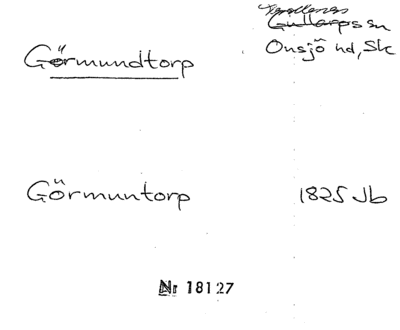 Görmundtorp
Gullarps sn
Onsjö hd, Sk
Görmuntorp 1825 Jb
Nr 18127